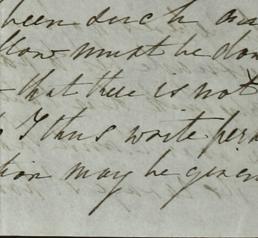 been such an
must be don
that there is not
I thus write per
tion may be given